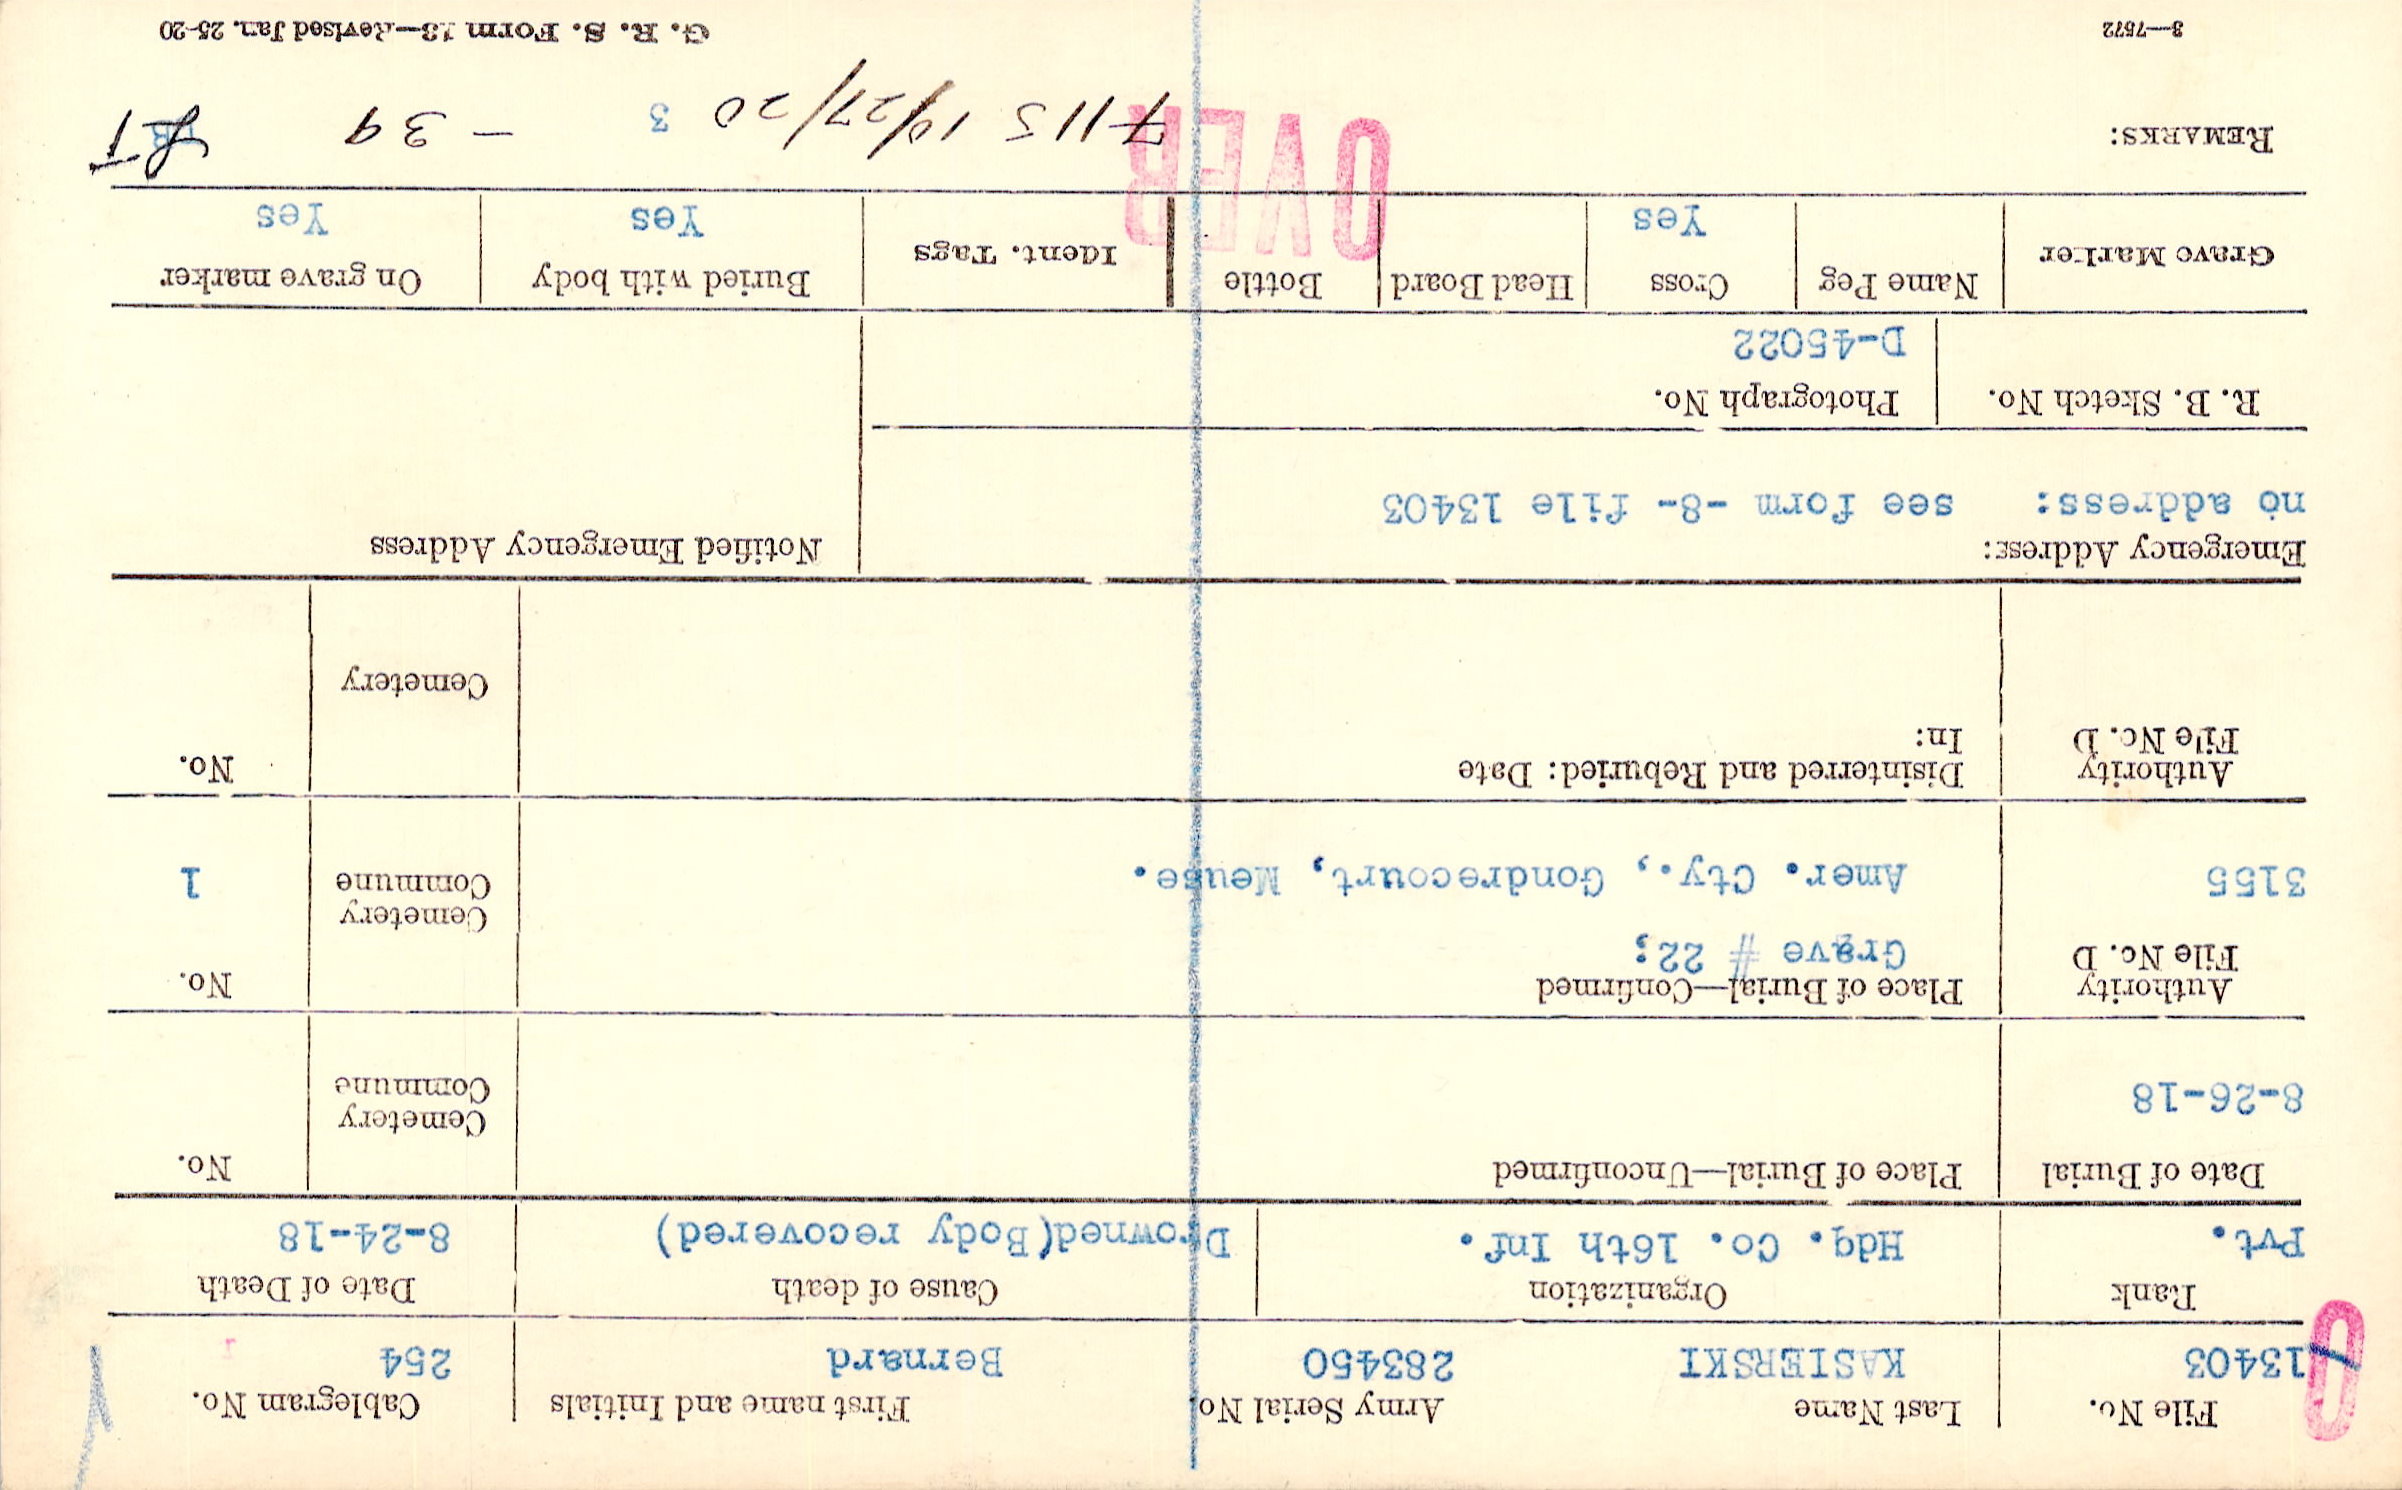 File No.  Last Name  Army Serial No.  First name and Initials  Cablegram No.
13403  KASIERSKI  283450  Bernard  254
Rank  Organization  Cause of death  Date of Death
Pvt.  Hdq. Co. 16th Inf.  Drowned(Body recovered)  8-24-18
Date of Burial  Place of Burial—Unconfirmed  No.
8-26-18  Cemetery
Commune
Authority  Place of Burial—Confirmed  No.
File No. D  Grave # 22;
Cemetery
3155  Amer. Cty., Gondrecourt, Meuse.  Commune  1
Authority  Disinterred and Reburied: Date  No.
File No. D  In:
Cemetery
Emergency Address:  Notified Emergency Address
no address:  see form -8- file 13403
R. B. Sketch No.  Photograph No.
D-45022
Grave Marker  Name Peg  Cross  Head Board  Bottle  Ident. Tags  Buried with body  On grave marker
Yes  Yes  Yes
OVER
REMARKS:  7115 10/27/20  3  - 39
3—7572  G. R. S. Form 13—Revised Jan. 25-20